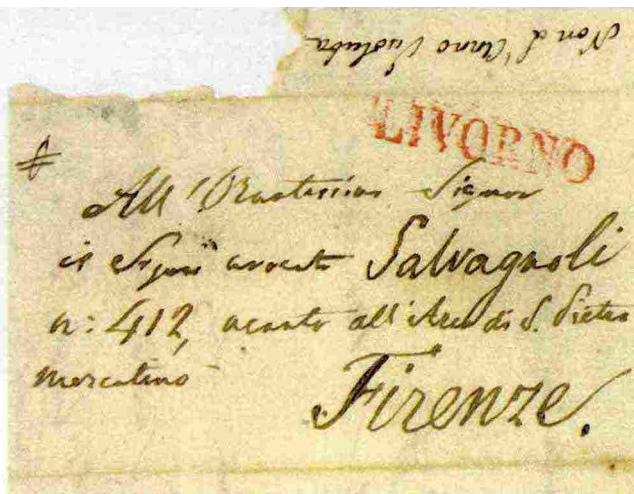 Non d'Anno
LIVORNO
All' Signor
il Signor avvocato Salvagnoli
n: 412, acanto all'Arco di S. Pietro
Mercatino
Firenze.